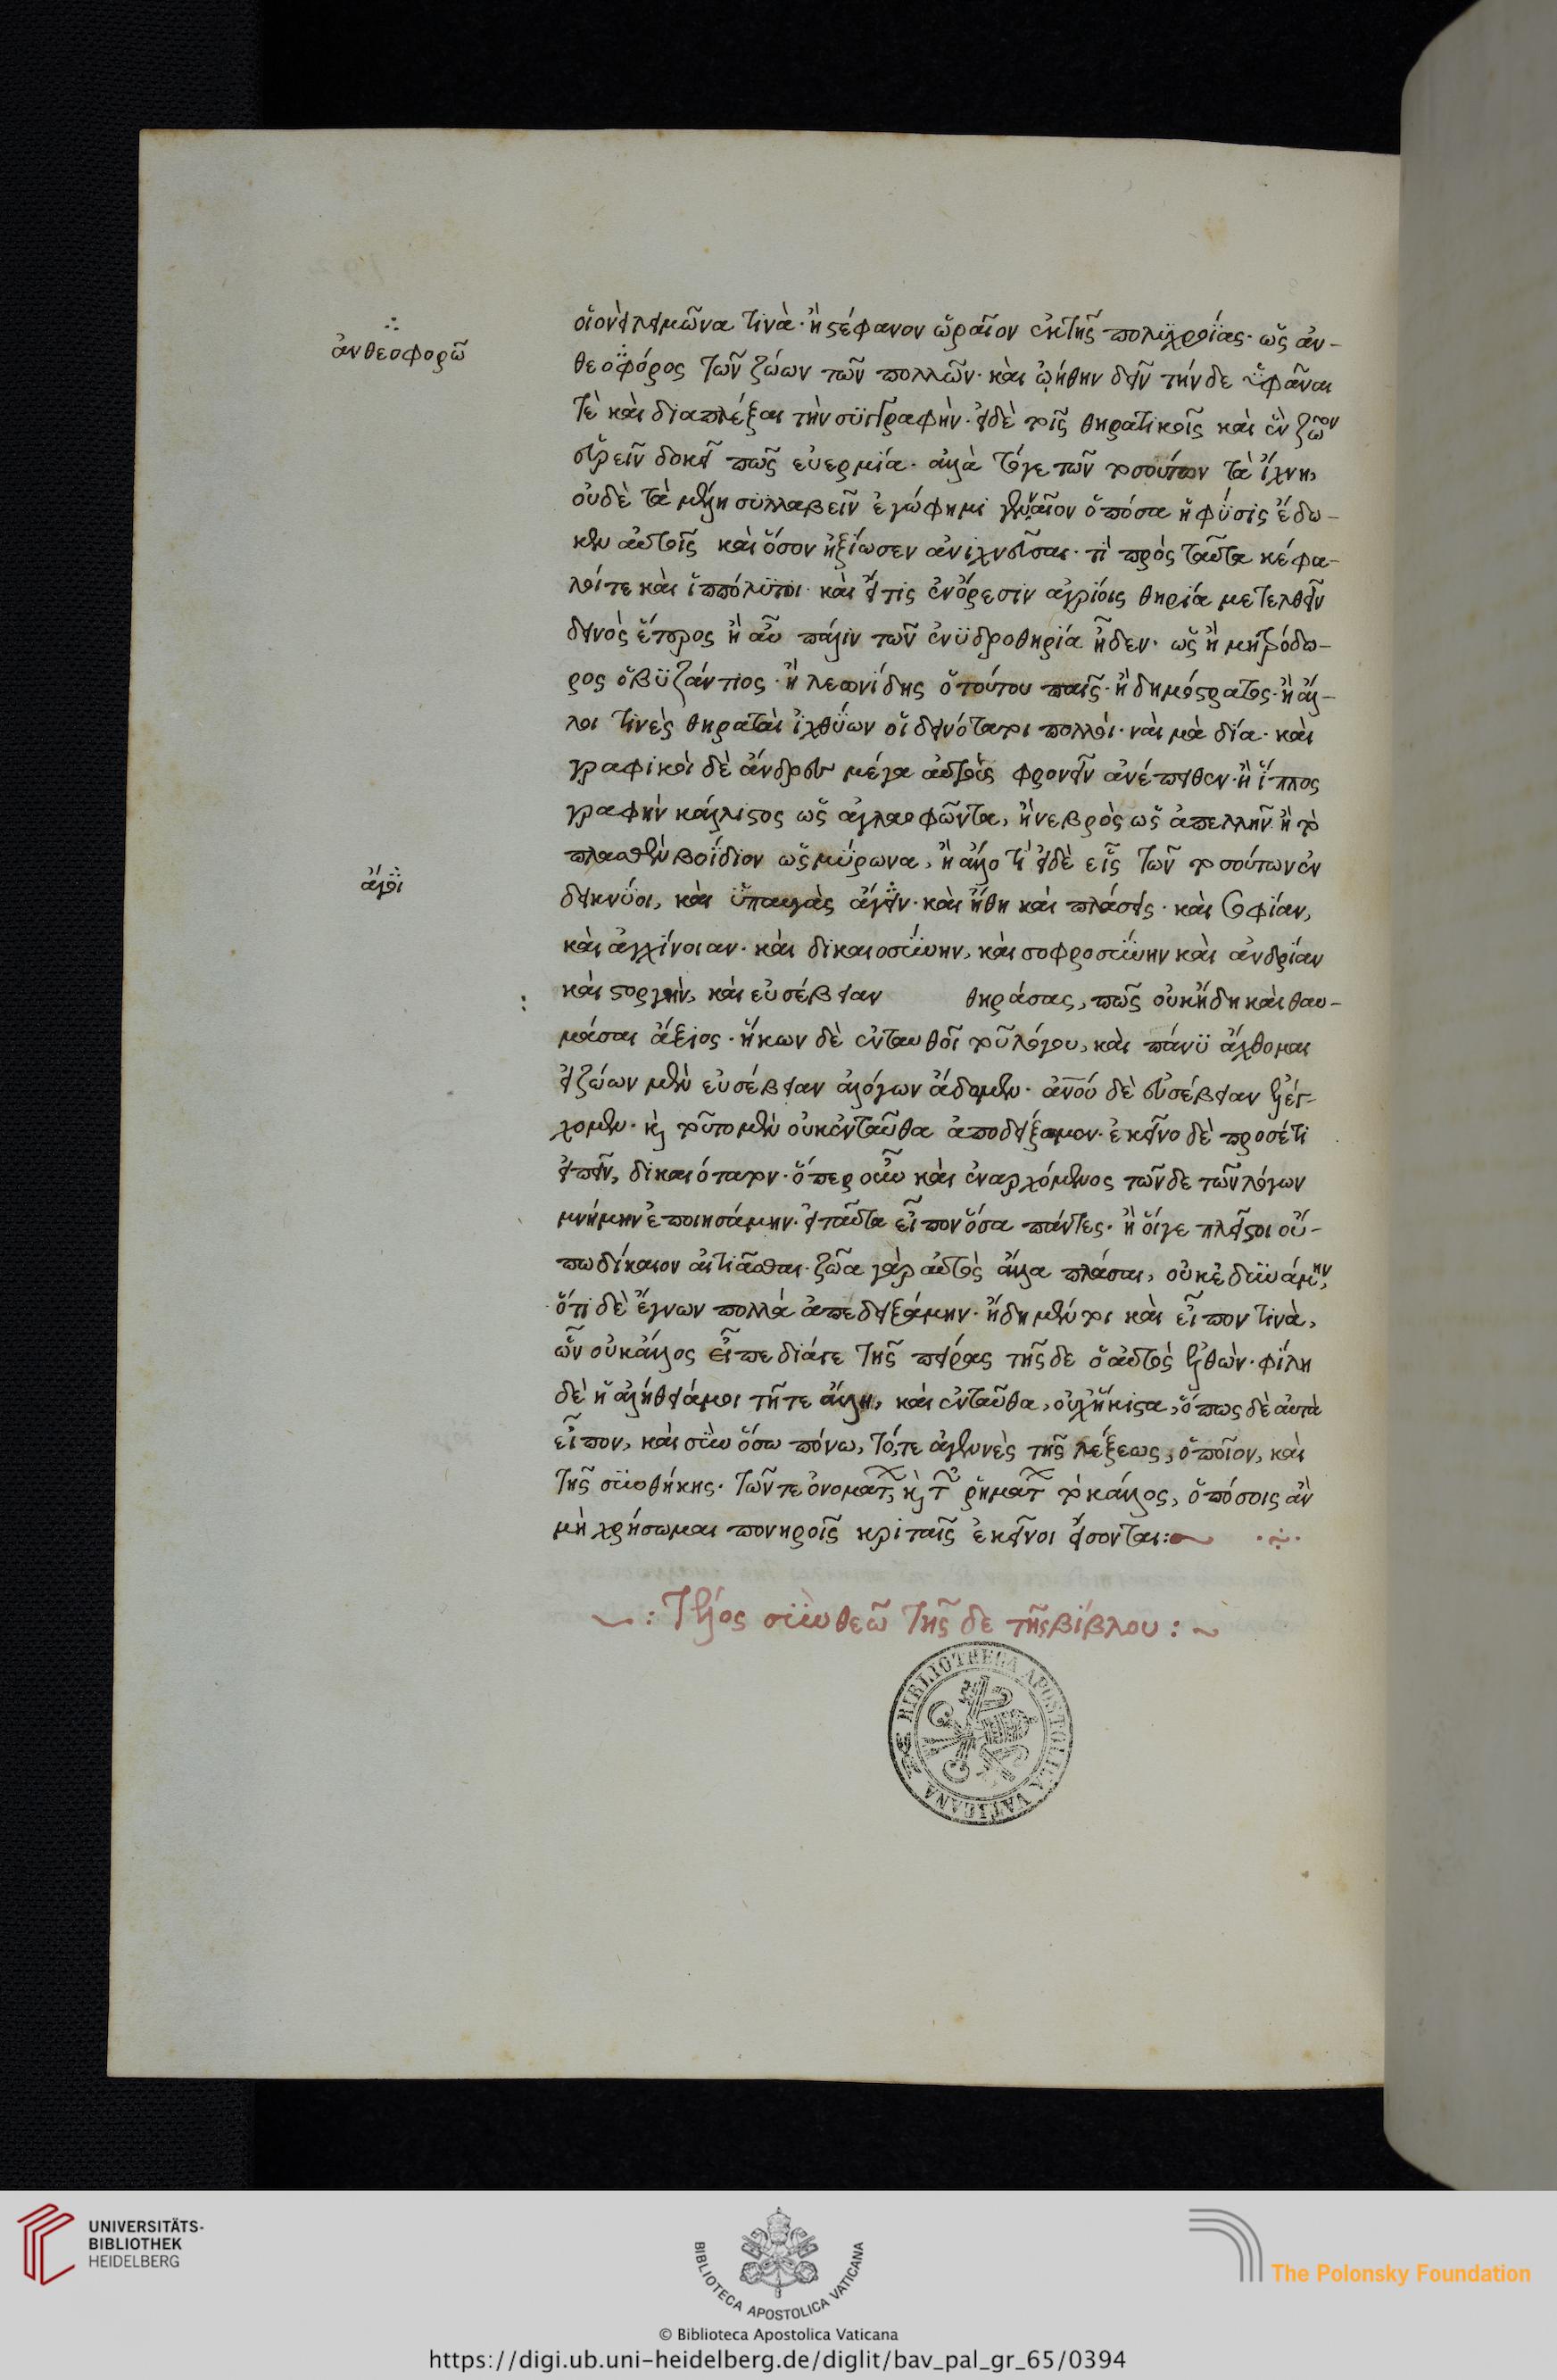 ἀνθεοφορῶ
οἷον εἰ λειμῶνα τινὰ· ἢ στέφανον ὡραῖον ἐκ τῆς πολυχροίας· ὡς ἀν-
θεοφόρος τῶν ζώων τῶν πολλῶν· καὶ ᾠήθην δεῖν τήνδε ὑφᾶναι
τὲ καὶ διαπλέξαι τὴν συγγραφὴν· εἰ δὲ τοῖς θηρατικοῖς καὶ ἓν ζῶον
εὑρεῖν δοκεῖ πως εὐερμία· ἀλλὰ τόγε τῶν τοσούτων τὰ ἴχνη,
οὐδὲ τὰ μέλη συλλαβεῖν ἐγώ φημι γενναῖον ὁπόσα ἡ φύσις ἔδω-
κεν αὐτοῖς καὶ ὅσον ἠξίωσεν ἀνιχνεῦσαι· τί πρὸς ταῦτα κέφα-
λοί τε καὶ ἱππόλυτοι· καὶ εἴ τις ἐν ὄρεσιν ἀγρίοις θηρία μετελθεῖν
δεινὸς ἕτερος ἢ αὖ πάλιν τῶν ἐνυδροθηρία ἦδεν· ὡς ἢ μητρόδω-
ρος ὁ βυζάντιος· ἢ λεωνίδης ὁ τούτου παῖς· ἢ δημόστρατος· ἢ ἄλ-
λοι τινὲς θηραταὶ ἰχθύων οἱ δεινότατοι πολλοὶ· ναὶ μὰ δία· καὶ
γραφικοὶ δὲ ἄνδρες μέγα αὐτοὺς φρονεῖν ἀνέπειθεν· ἢ ἵππος
γραφὴν κάλλιστος ὡς ἀγλαοφῶντα, ἢ νεβρὸς ὡς ἀπελλῆν ἢ τὸ
πλασθὲν βοΐδιον ὡς μύρωνα, ἢ ἄλλο τί· εἰ δὲ εἷς τῶν τοσούτων ἐν
ἄγοι
δεικνύοι, καὶ ὑπαυγὰς ἄγειν· καὶ ἤθη καὶ πλάσεις· καὶ σοφίαν,
καὶ ἀγχίνοιαν· καὶ δικαιοσύνην, καὶ σοφροσύνην καὶ ἀνδρίαν
: καὶ στοργὴν, καὶ εὐσέβειαν θηράσας, πῶς οὐκ ἤδη καὶ θαυ-
μάσαι ἄξιος· ἥκων δὲ ἐνταυθοῖ τοῦ λόγου, καὶ πάνυ ἄχθομαι
εἰ ζώων μὲν εὐσέβειαν ἀλόγων ἄδομεν· ἀνου δὲ δυσέβειαν ἐλέγ-
χομεν· καὶ τοῦτο μὲν οὐκ ἐνταῦθα ἀποδείξαιμον· ἐκεῖνο δὲ προσέτι
εἰπεῖν, δικαιότατον· ὅπερ οὖν καὶ ἐναρχόμενος τῶνδε τῶν λόγων
μνήμην ἐποιησάμην· εἰ ταῦτα εἶπον ὅσα πάντες· ἢ οἵγε πλεῖστοι οὔ-
πω δίκαιον αἰτιᾶσθαι· ζῶα γὰρ αὐτὸς ἄλλα πλάσαι, οὐκ ἐδυνάμην,
ὅτι δὲ ἔγνων πολλὰ ἀπεδειξάμην· ἤδη μέντοι καὶ εἶπον τινὰ,
ὧν οὐκ ἄλλος εἶπε διάγε τῆς πείρας τῆσδε ὁ αὐτὸς ἐλθών· φίλη
δὲ ἡ ἀλήθειά μοι τῇ τε ἄλλῃ, καὶ ἐνταῦθα, οὐχ ἥκιστα, ὅπως δὲ αὐτὰ
εἶπον, καὶ σὺν ὅσω πόνω, τό,τε ἀγενὲς τῆς λέξεως, ὁποῖον, καὶ
τῆς συνθήκης· τῶν τε ὀνομάτων, καὶ τῶν ῥημάτων τὸ κάλλος, ὁπόσοις ἂν
μὴ χρήσωμαι πονηροῖς κριταῖς ἐκεῖνοι εἴσονται:
: Τέλος σὺν θεῶ τῆσδε τῆς βίβλου :
BIBLIOTHECA APOSTOLICA VATICANA
UNIVERSITÄTS-
BIBLIOTHEK
HEIDELBERG
BIBLIOTECA APOSTOLICA VATICANA
The Polonsky Foundation
© Biblioteca Apostolica Vaticana
https://digi.ub.uni-heidelberg.de/diglit/bav_pal_gr_65/0394